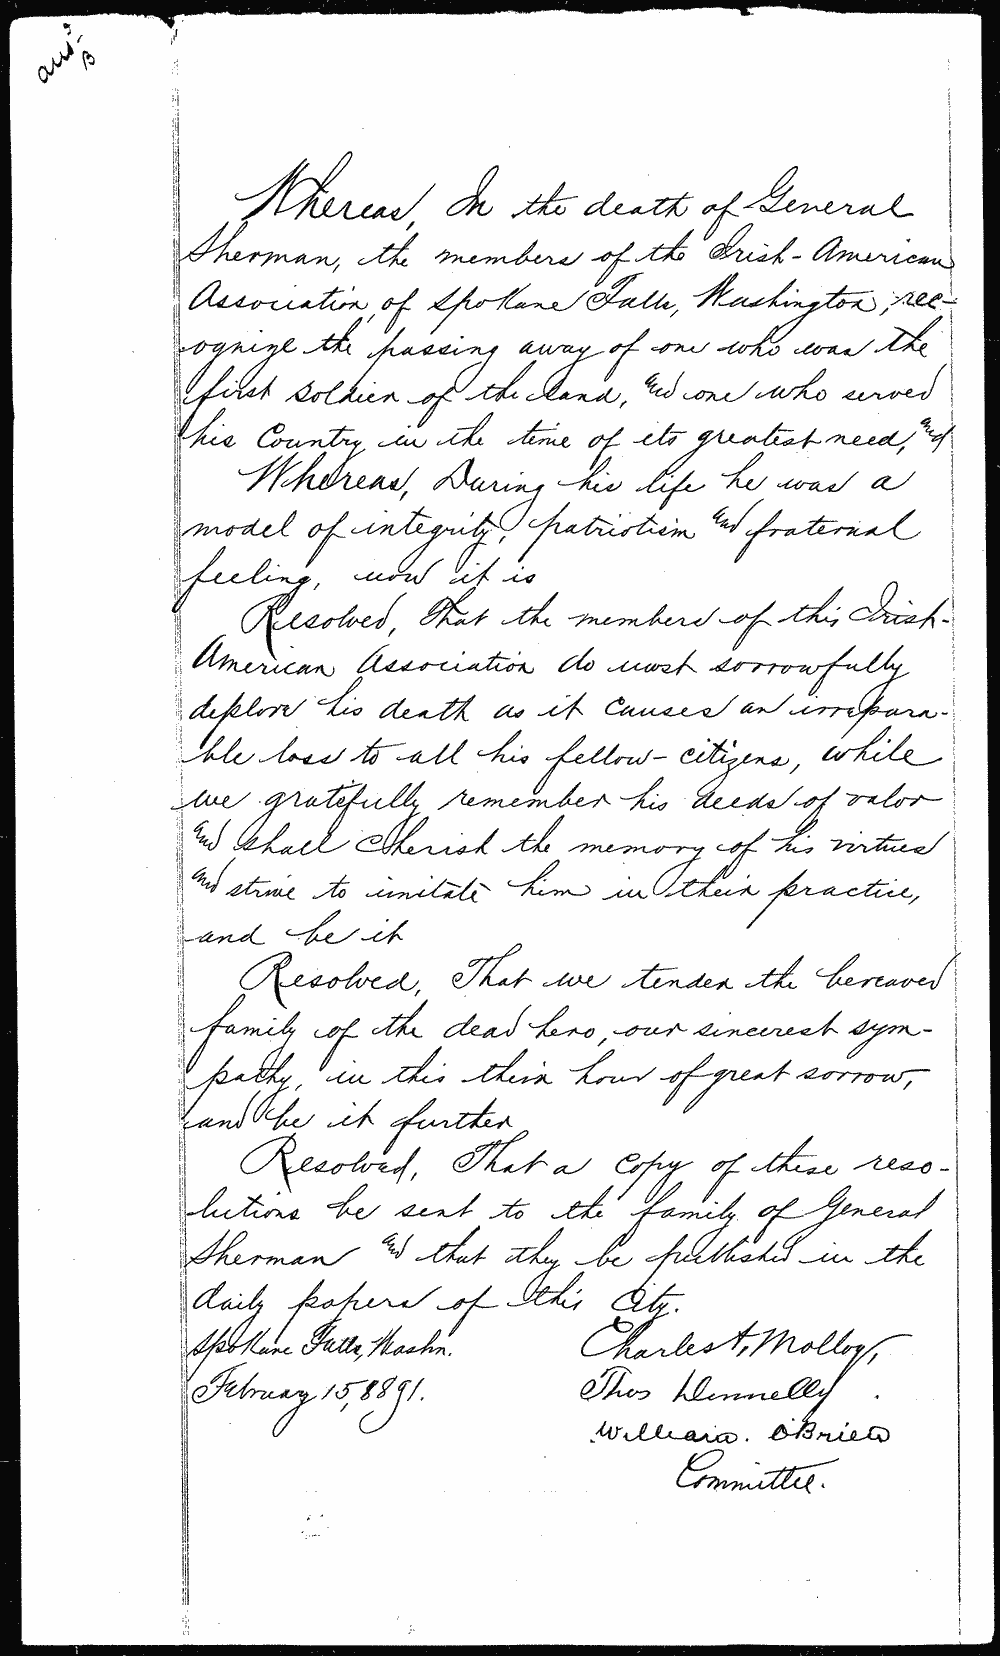 ans
B
Whereas, In the death of General
Sherman, the members of the Irish-American
Association, of Spokane Falls, Washington, rec-
ognize the passing away of one who was the
first soldier of the land, and one who served
his Country in the time of its greatest need, and
Whereas, During his life he was a
model of integrity, patriotism and fraternal
feeling, now it is
Resolved, That the members of this Irish-
American Association do most sorrowfully
deplore his death as it causes an irrepara-
ble loss to all his fellow-citizens, while
we gratefully remember his deeds of valor
and shall cherish the memory of his virtues
and strive to imitate him in their practice,
and be it
Resolved, That we tender the bereaved
family of the dead hero, our sincerest sym-
pathy, in this their hour of great sorrow,
and be it further
Resolved, That a copy of these reso-
lutions be sent to the family of General
Sherman and that they be published in the
daily papers of this City.
Spokane Falls, Washn. Charles A. Molloy,
February 15, 1891. Thos Dennelly
William. O'Brien
Committee.